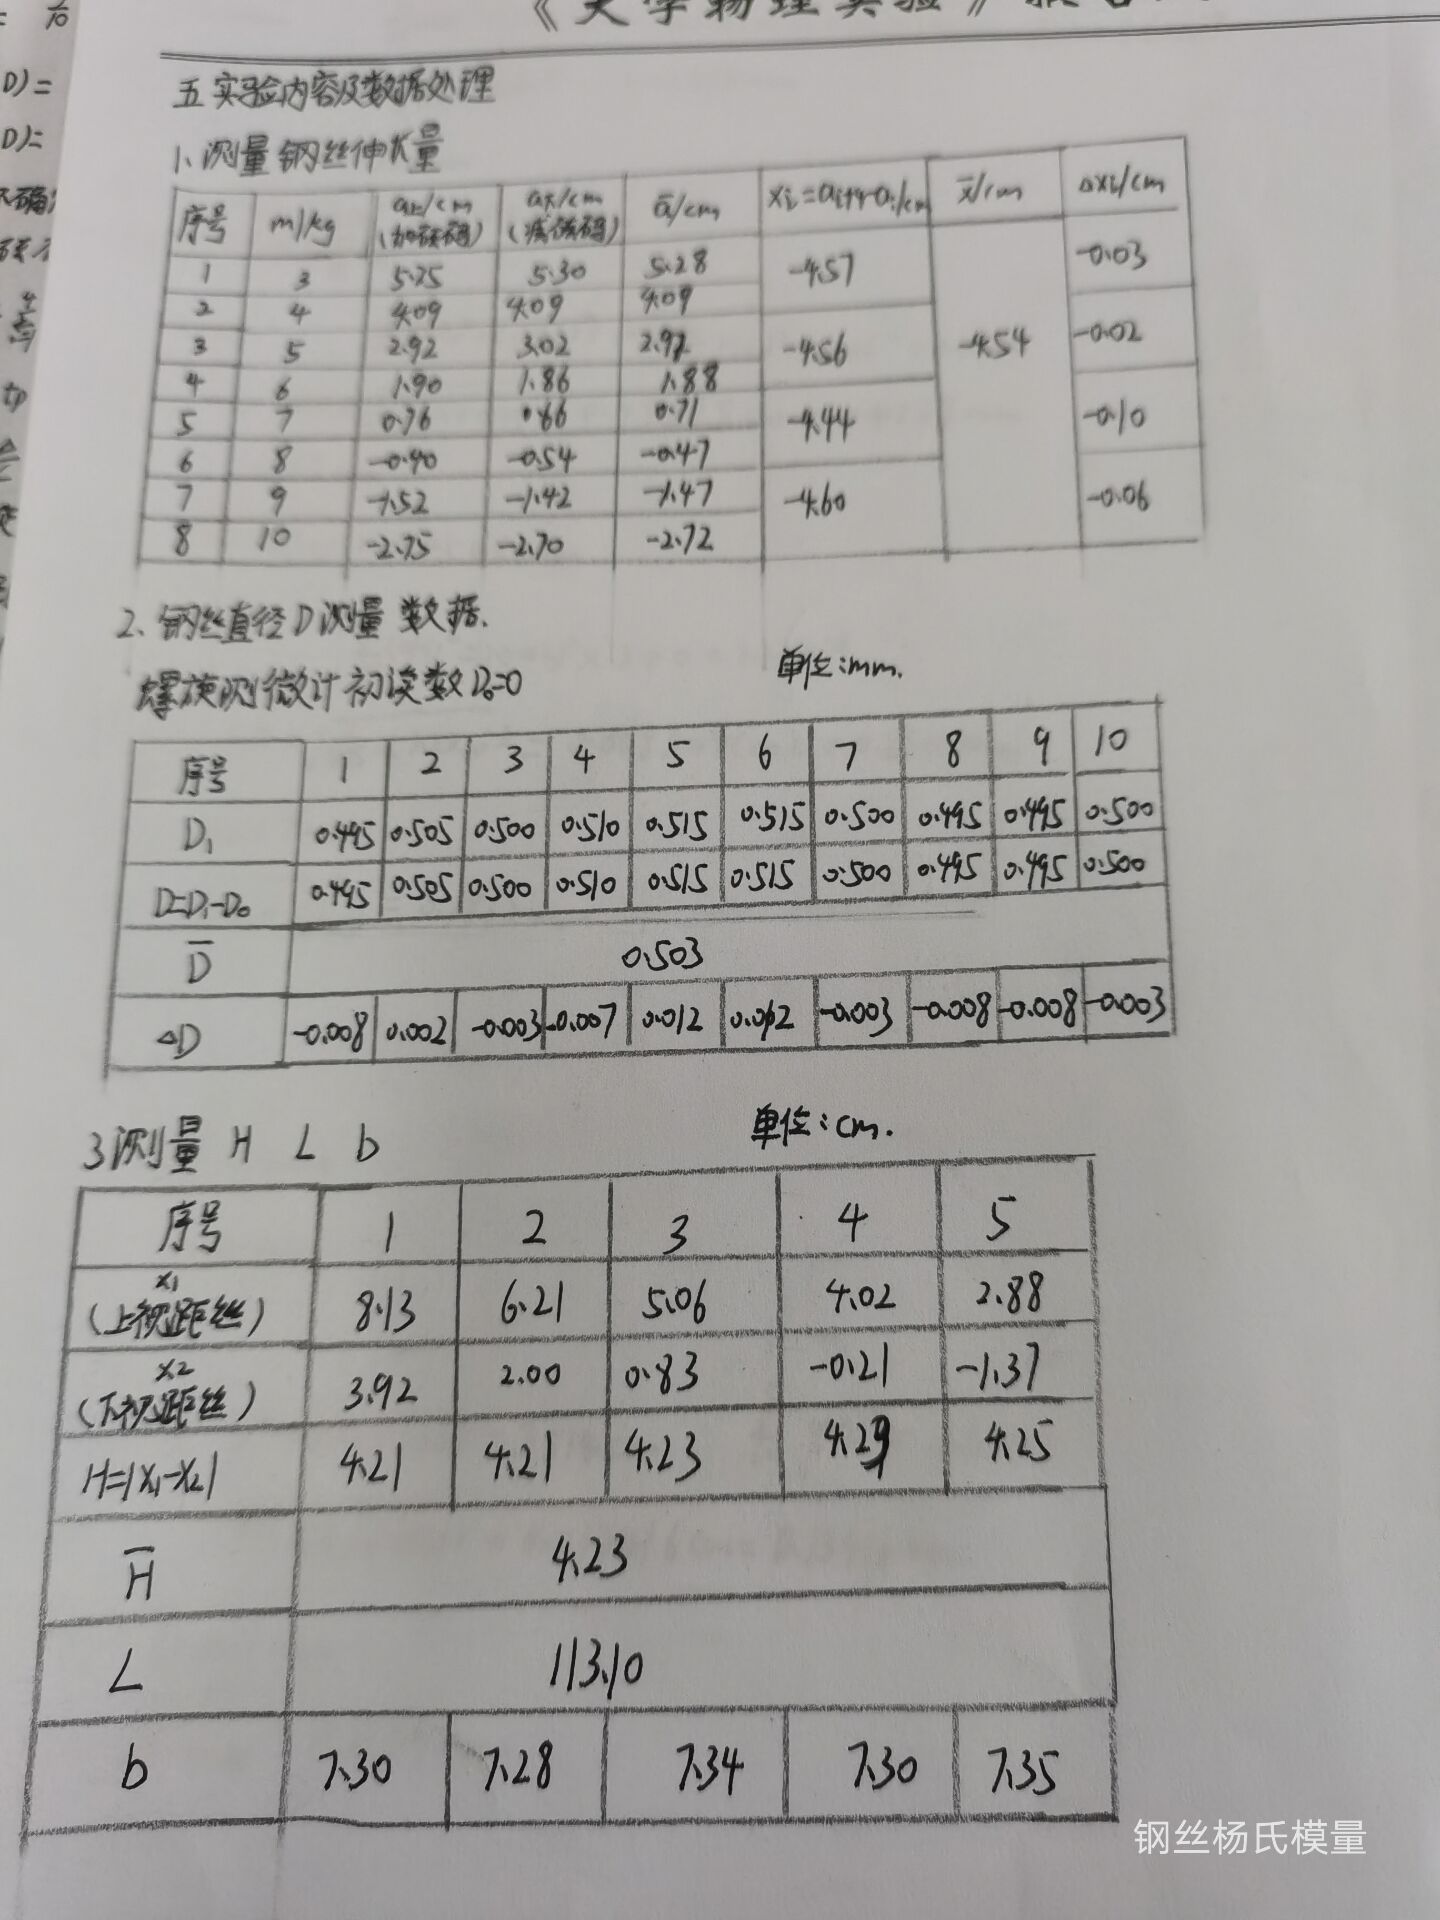 《大学物理实验》报告
五 实验内容及数据处理
1、测量钢丝伸长量
序号 m/kg a上/cm (加砝码) a下/cm (减砝码) ā/cm xi=ai+4-ai/cm x̄/cm Δxi/cm
1 3 5.25 5.30 5.28 -4.57 -4.54 -0.03
2 4 4.09 4.09 4.09
3 5 2.92 3.02 2.97 -4.56 -0.02
4 6 1.90 1.86 1.88
5 7 0.76 0.66 0.71 -4.44 -0.10
6 8 -0.40 -0.54 -0.47
7 9 -1.52 -1.42 -1.47 -4.60 -0.06
8 10 -2.75 -2.70 -2.72
2、钢丝直径D测量数据.
单位:mm.
螺旋测微计初读数D₀=0
序号 1 2 3 4 5 6 7 8 9 10
D₁ 0.495 0.505 0.500 0.510 0.515 0.515 0.500 0.495 0.495 0.500
D=D₁-D₀ 0.495 0.505 0.500 0.510 0.515 0.515 0.500 0.495 0.495 0.500
D̄ 0.503
ΔD -0.008 0.002 -0.003 -0.007 0.012 0.012 -0.003 -0.008 -0.008 -0.003
3 测量 H L b
单位:cm.
序号 1 2 3 4 5
x₁ (上视距丝) 8.13 6.21 5.06 4.02 2.88
x₂ (下视距丝) 3.92 2.00 0.83 -0.21 -1.37
H=|x₁-x₂| 4.21 4.21 4.23 4.25
H̄ 4.23
L 113.10
b 7.30 7.28 7.34 7.30 7.35
钢丝杨氏模量